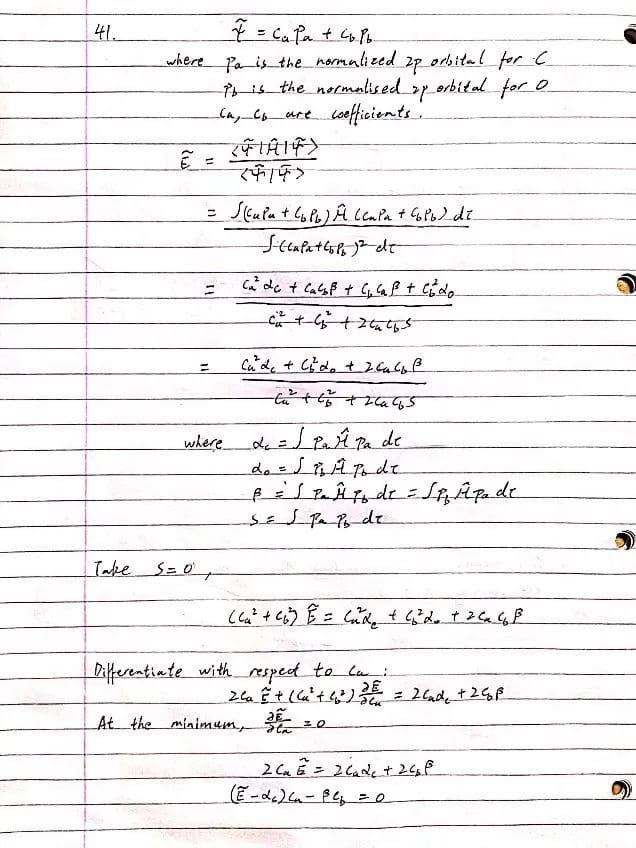 41. Ψ̃ = CaPa + CbPb
where Pa is the normalized 2p orbital for C
Pb is the normalised 2p orbital for O
Ca, Cb are coefficients.
Ẽ = <Ψ̃|Ĥ|Ψ̃> / <Ψ̃|Ψ̃>
= ∫(CaPa + CbPb) Ĥ (CaPa + CbPb) dτ / ∫(CaPa + CbPb)² dτ
= Ca²αc + CaCbβ + CbCaβ + Cb²αo / Ca² + Cb² + 2CaCbS
= Ca²αc + Cb²αo + 2CaCbβ / Ca² + Cb² + 2CaCbS
where αc = ∫ Pa Ĥ Pa dτ
αo = ∫ Pb Ĥ Pb dτ
β = ∫ Pa Ĥ Pb dτ = ∫ Pb Ĥ Pa dτ
S = ∫ Pa Pb dτ
Take S=0,
(Ca² + Cb²) Ẽ = Ca²αc + Cb²αo + 2CaCbβ
Differentiate with respect to Ca :
2Ca Ẽ + (Ca² + Cb²) ∂Ẽ/∂Ca = 2Caαc + 2Cbβ
At the minimum, ∂Ẽ/∂Ca = 0
2Ca Ẽ = 2Caαc + 2Cbβ
(Ẽ - αc)Ca - βCb = 0